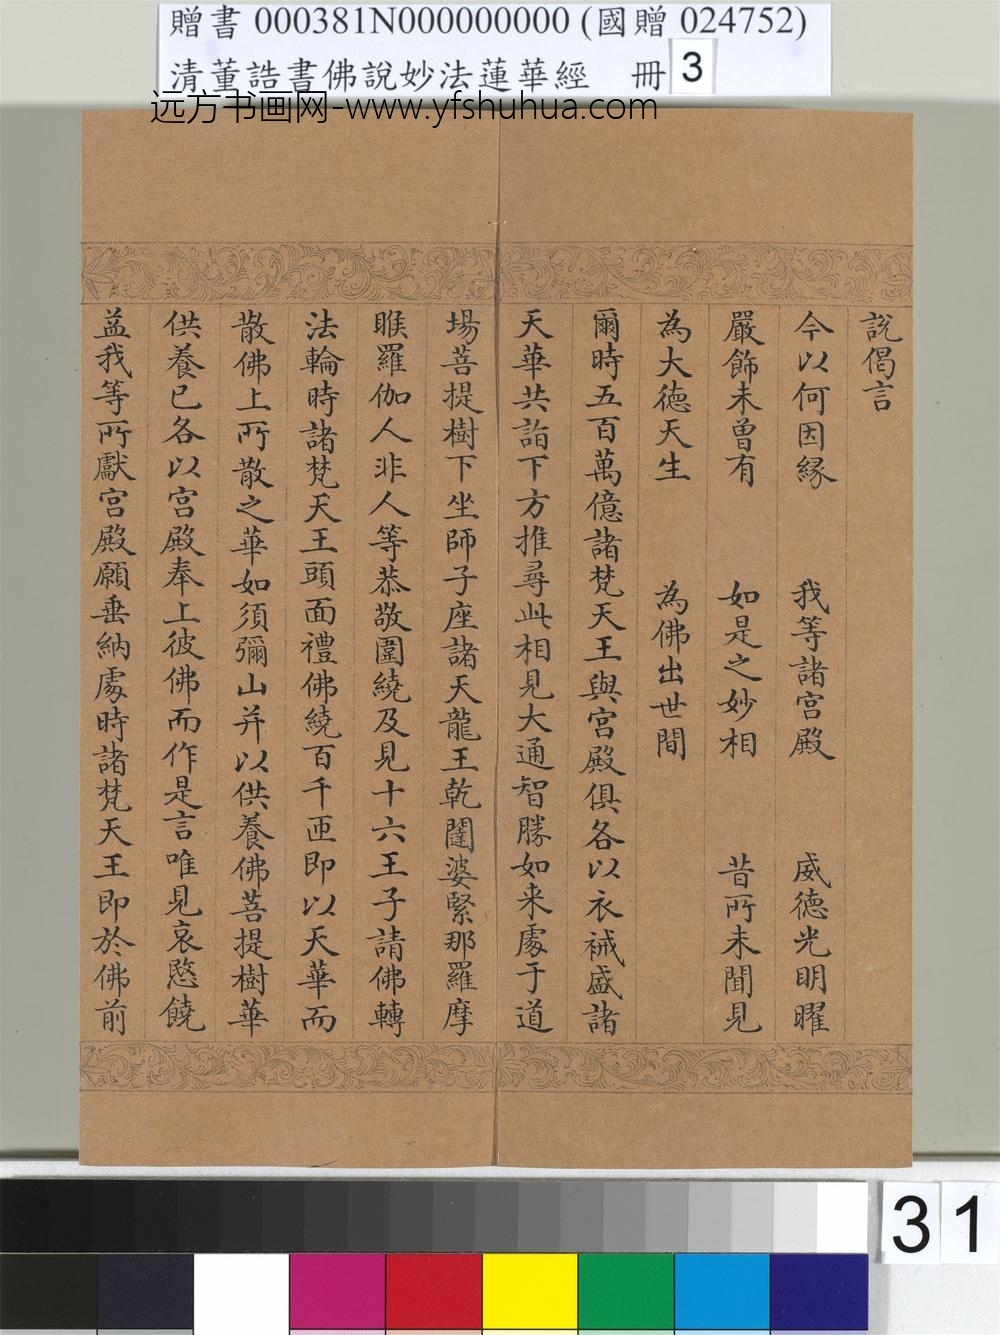 贈書 000381N000000000 (國贈 024752)
清董誥書佛說妙法蓮華經 冊 3
远方书画网-www.yfshuhua.com
說偈言
今以何因緣 我等諸宮殿 威德光明曜
嚴飾未曾有 如是之妙相 昔所未聞見
為大德天生 為佛出世間
爾時五百萬億諸梵天王與宮殿俱各以衣祴盛諸
天華共詣下方推尋此相見大通智勝如来處于道
場菩提樹下坐師子座諸天龍王乾闥婆緊那羅摩
睺羅伽人非人等恭敬圍繞及見十六王子請佛轉
法輪時諸梵天王頭面禮佛繞百千匝即以天華而
散佛上所散之華如須彌山并以供養佛菩提樹華
供養已各以宮殿奉上彼佛而作是言唯見哀愍饒
益我等所獻宮殿願垂納處時諸梵天王即於佛前
31